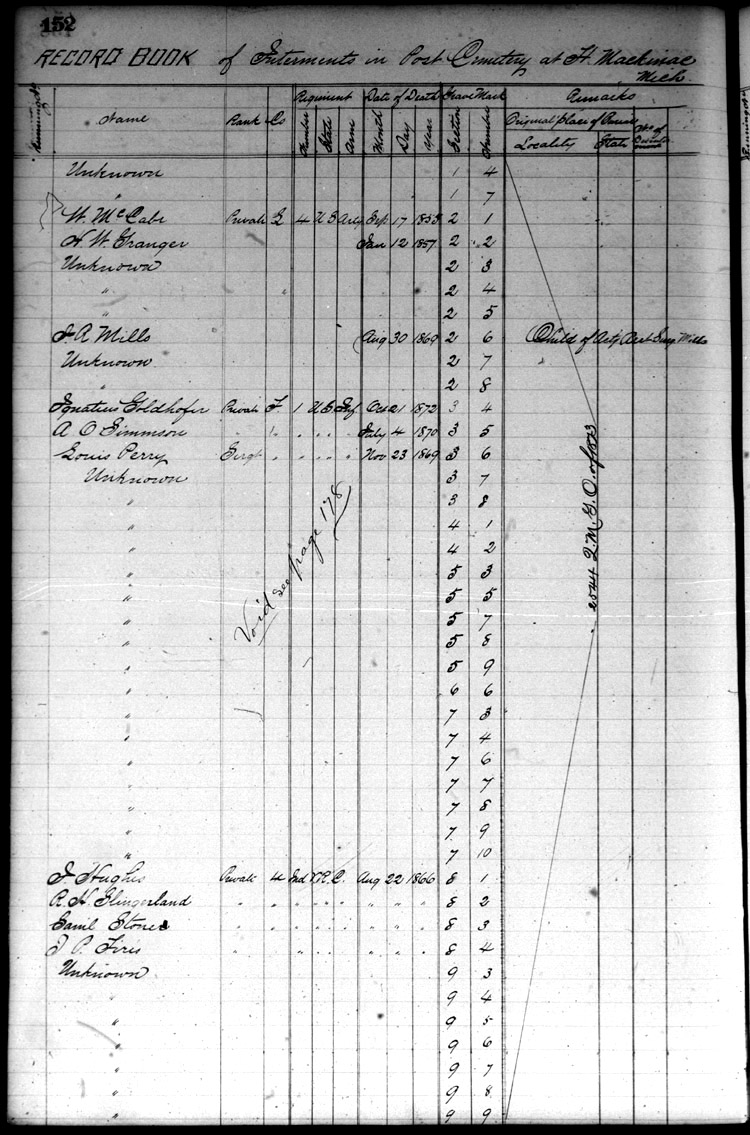 152
RECORD BOOK of Interments in Post Cemetery at Ft. Mackinac Mich.
Running No.
Name Rank Co Regiment Date of Death Grave Mark Remarks
Number State Arm Month Day Year Section Number Original place of
Locality State No of
Unknown 1 4
" 1 7
W. McCabe Private G 4 U S Arty Sep 17 1853 2 1
H. W. Granger Jan 12 1857 2 2
Unknown 2 3
" " 2 4
" 2 5
J A Mills Aug 30 1869 2 6 Child of Act'g Asst Surg Mills
Unknown 2 7
" 2 8
Ignatius Goldhofer Private F 1 U S Inf Oct 21 1872 3 4
A O Simmson " " " " " " July 4 1870 3 5
Louis Perry Sergt " " " " " Nov 23 1869 3 6
Unknown 3 7
" 3 8
" 4 1
" 4 2
" 5 3
" 5 5
" 5 7
" 5 8
" 5 9
" 6 6
" 7 3
" 7 4
" 7 6
" 7 7
" 7 8
" 7 9
" 7 10
Void see page 178
2544 Q.M.G.O. of 1873
J Hughis Private 4 Ind V.R.C. Aug 22 1866 8 1
R. H. Slingerland " " " " " " " " 8 2
Samil Stones " " " " " " " " 8 3
J P. Firis " " " " " " " " 8 4
Unknown 9 3
" 9 4
" 9 5
" 9 6
" 9 7
" 9 8
" 9 9